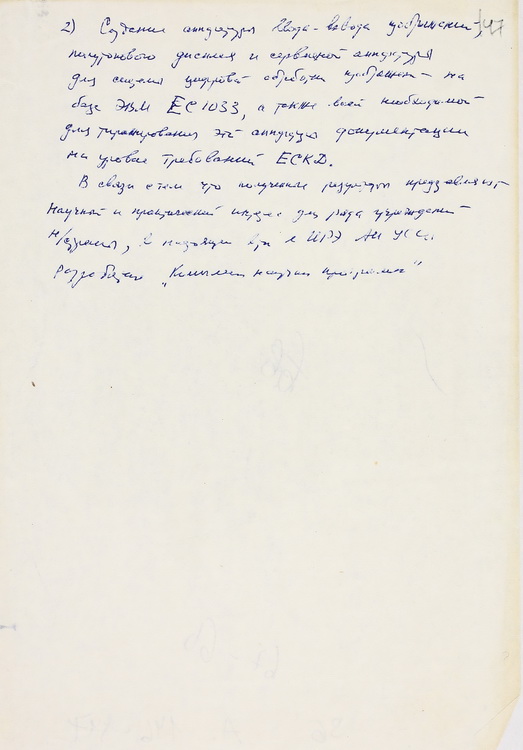 2) Создание аппаратуры ввода-вывода изображений, 47
полутонового дисплея и сервисной аппаратуры
для системы цифровой обработки изображений на
базе ЭВМ ЕС 1033, а также всей необходимой
для тиражирования этой аппаратуры документации
на уровне требований ЕСКД.
В связи с тем что полученные результаты представляют
научный и практический интерес для ряда учреждений
в ИРЭ АН УССР
разработана „Комплексная научная программа"